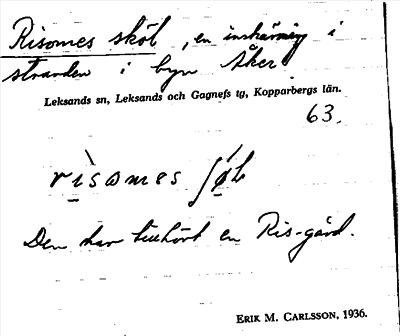 Risomes sköl, en inskärning i
stranden i byn Åker
Leksands sn, Leksands och Gagnefs tg, Kopparbergs län.
63.
rìsomes
Den har tillhört en Ris-gård.
ERIK M. CARLSSON, 1936.